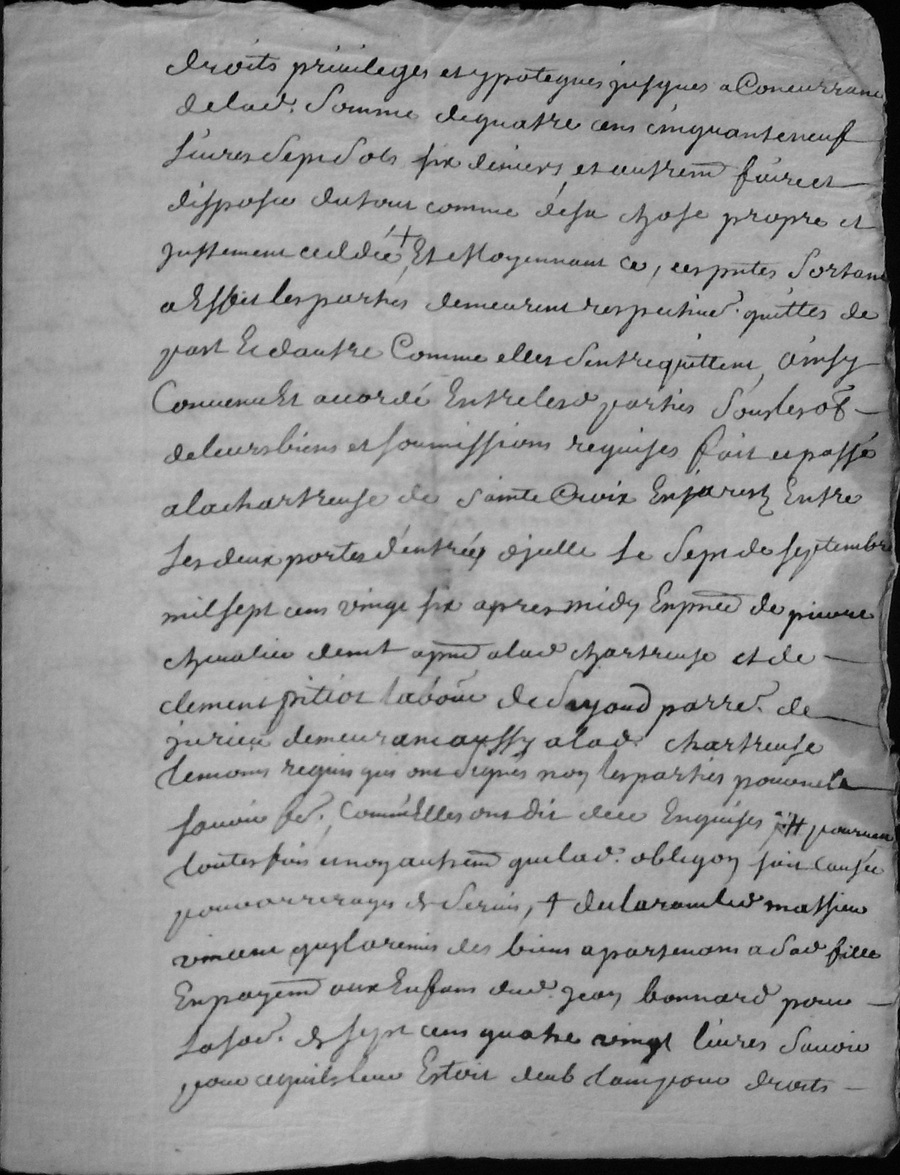 droits privileges et ypoteques jusques a Concurrane
delad. Somme de quatre cens cinquante neuf
livres Sept Sols six deniers et autrem faire et
disposer du tout comme de sa chose propre et
justement ceddée + Et Moyennant ce, ces pntes Sortant
a Effet les parties demeurent respectived. quittes de
part Et dautre Comme elles Sentrequittent, ainsy
Convenu Et accordé Entre lesd parties Sous les ob
de leurs biens et soumissions requises fait et passé
a la chartreuse de Sainte Croix En jarest Entre
Les deux portes dentrée djcelle Le Sept de septembre
mil sept cens vingt six apres midy En pnce de pierre
chevalier demt a pnt a lad chartreuse et de
clement pitiot labor de Soyoud parre. de
jurieu demeurant aussy a lad. chartreuse
temoins requis qui ont Signés non les parties pour ne le
savoir fe. Comme Elles ont dit de ce Enquises # pourveu
toutes fois et non autrem que lad. obligon soit causée
pour arrerages de Servis, + declarant led mathieu
vincent quyl a remis des biens apartenans a Sad fille
En payem aux Enfans dud. jean bonnard pour
la so d. de sept cens quatre vingt livres Savoir
pour ce quils leur Estoit deub tam pour droits